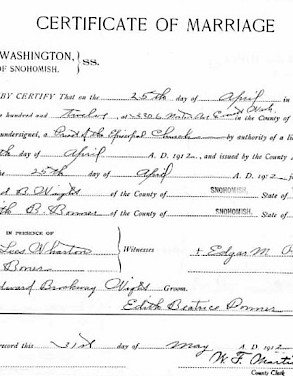 CERTIFICATE OF MARRIAGE
WASHINGTON,
OF SNOHOMISH. } ss.
BY CERTIFY That on the 25th day of April in
hundred and twelve, at 2306 in the County of
undersigned, a Priest of the Episcopal Church by authority of a li
th day of April A. D. 1912, and issued by the County A
the 25th day of April A. D. 1912
d B. Wight of the County of SNOHOMISH, State of
th B. Bonner of the County of SNOHOMISH, State of
IN PRESENCE OF
Wharton Witnesses Edgar M.
dward Brockway Wight Groom.
Edith Beatrice Bonner
record this 31st day of May A. D. 1912
W. F. Marti
County Clerk